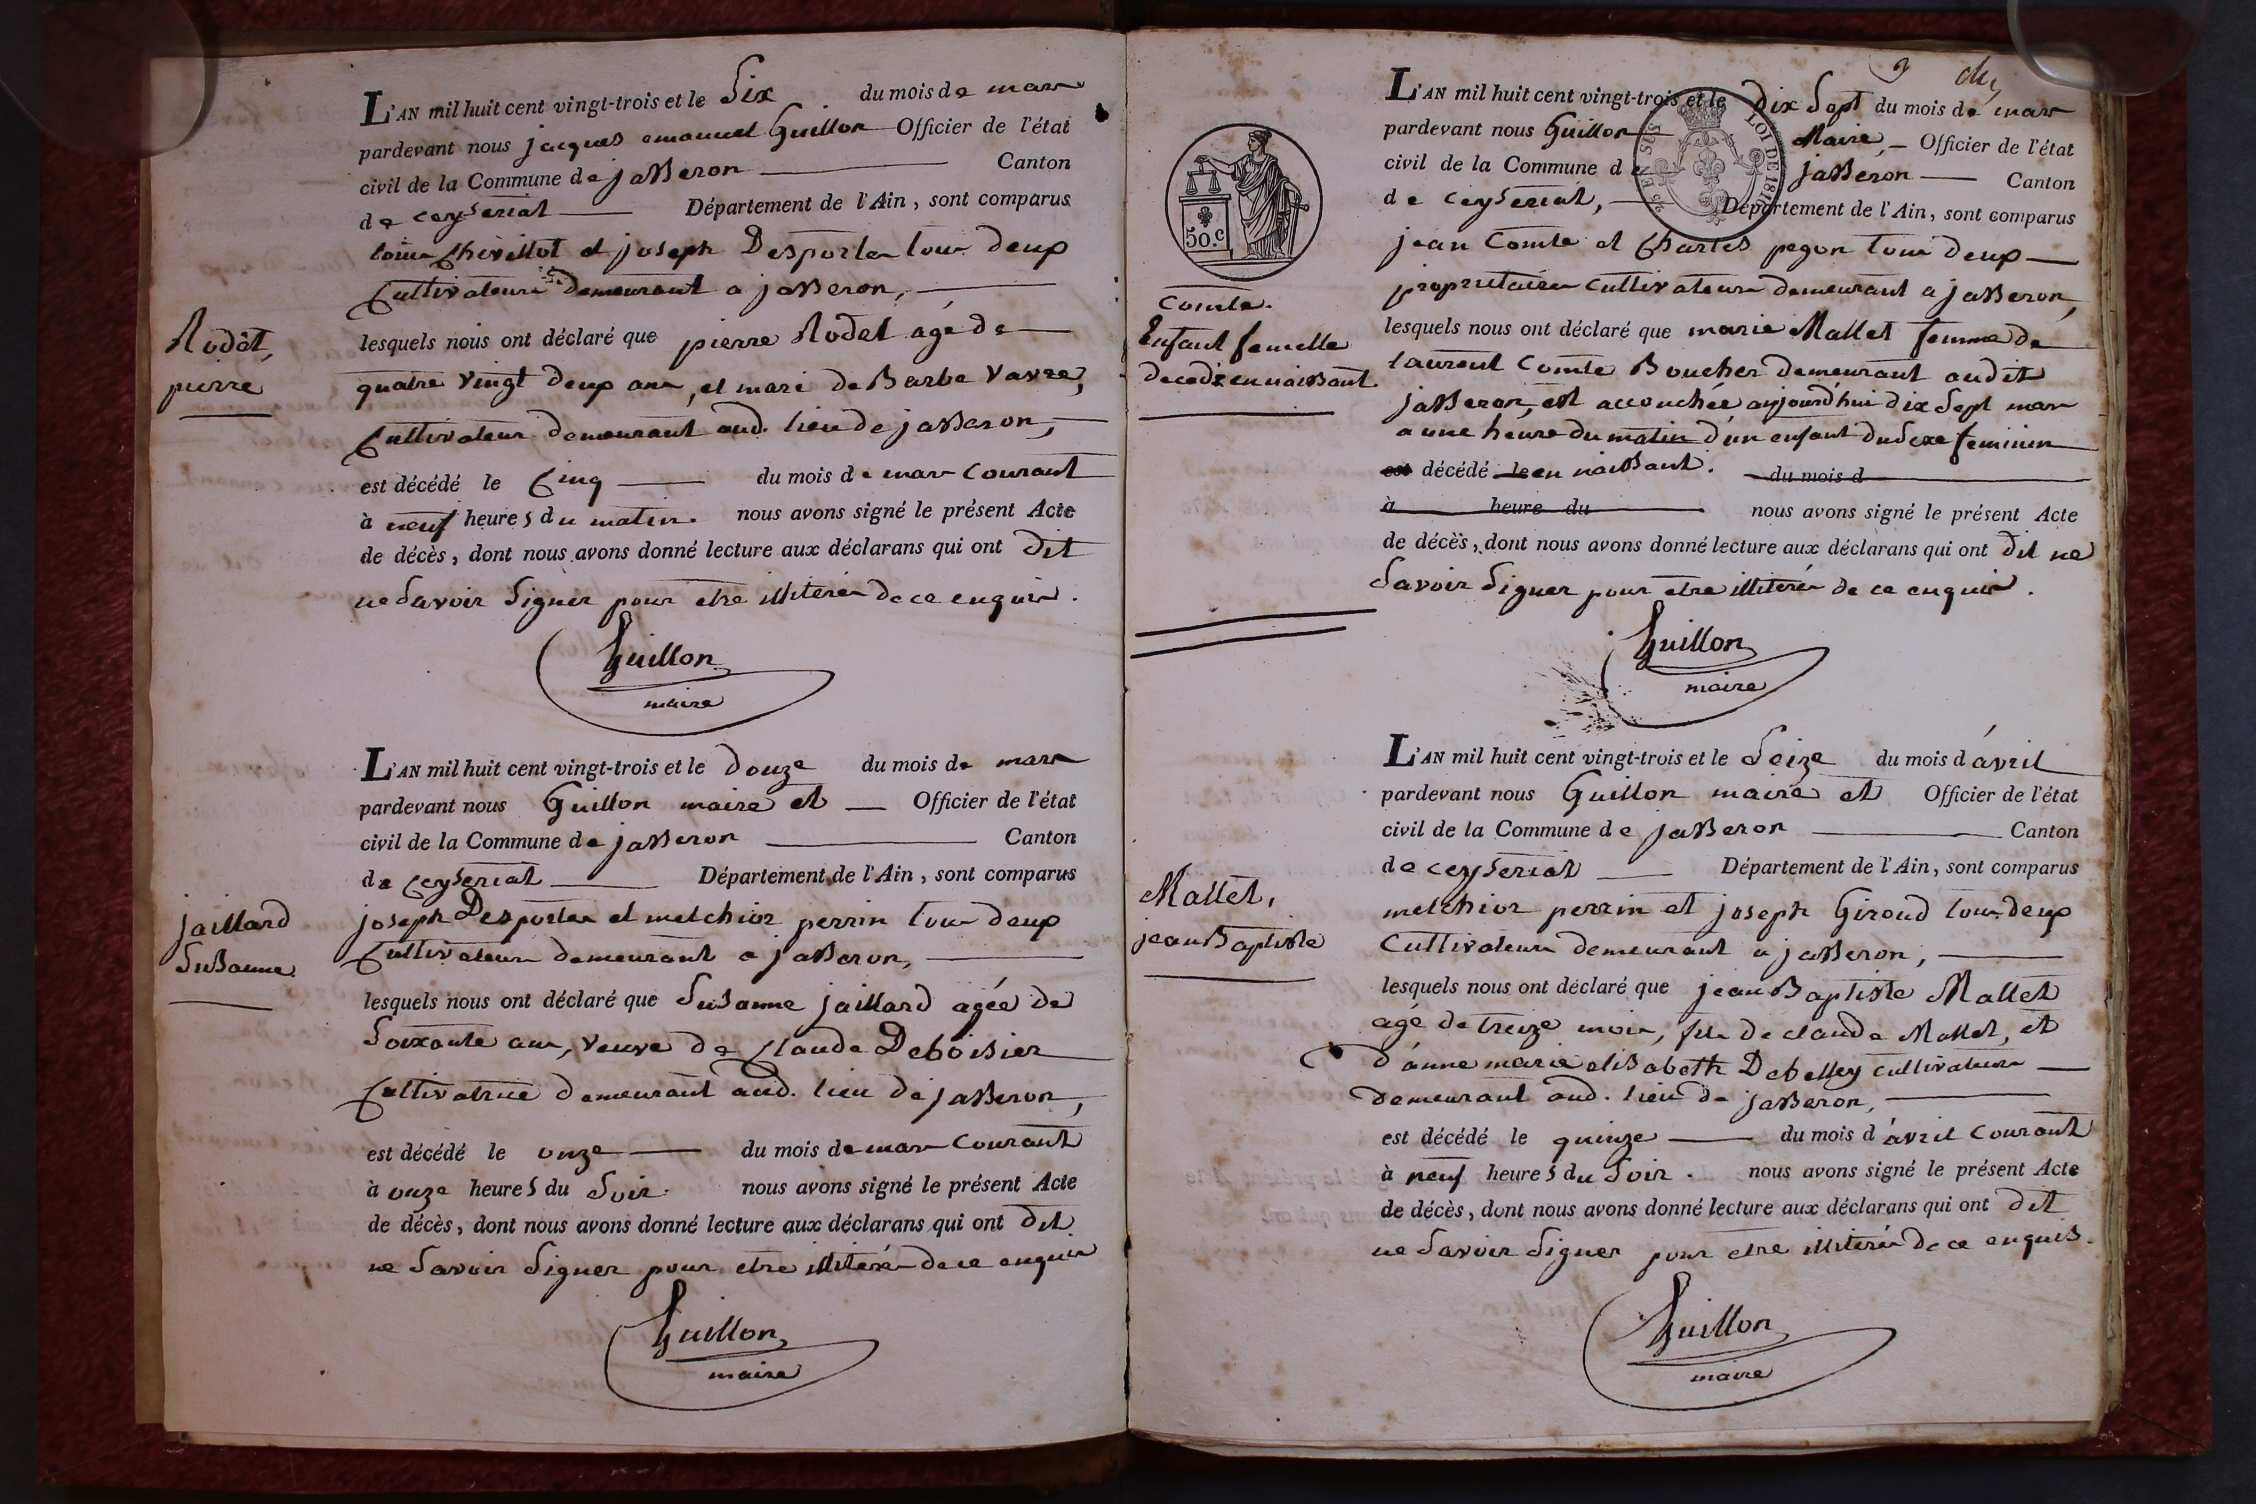 L'AN mil huit cent vingt-trois et le Six du mois de mars
pardevant nous jacques emanuel Guillon Officier de l'état
civil de la Commune de jasseron Canton
de ceyseriat Département de l'Ain, sont comparus
louis Chevillot et joseph Desportes tous deux
Cultivateurs demeurant a jasseron,
Rodet,
pierre
lesquels nous ont déclaré que pierre Rodet agé de
quatre vingt deux ans, et mari de Barbe Vavre,
Cultivateur demeurant aud. lieu de jasseron,
est décédé le Cinq du mois de mars Courant
à neuf heures du matin. nous avons signé le présent Acte
de décès, dont nous avons donné lecture aux déclarans qui ont dit
ne Savoir Signer pour etre illiterés de ce enquis.
Guillon
maire
L'AN mil huit cent vingt-trois et le douze du mois de mars
pardevant nous Guillon maire et Officier de l'état
civil de la Commune de jasseron Canton
de Ceyseriat Département de l'Ain, sont comparus
jaillard
Susanne
joseph Desportes et melchior perrin tous deux
Cultivateurs demeurant a jasseron,
lesquels nous ont déclaré que Susanne jaillard agée de
Soixante ans, veuve de Claude Deboisier
Cultivatrice demeurant aud. lieu de jasseron,
est décédé le onze du mois de mars Courant
à onze heures du Soir. nous avons signé le présent Acte
de décès, dont nous avons donné lecture aux déclarans qui ont dit
ne Savoir Signer pour etre illiterés de ce enquis
Guillon
maire
L'AN mil huit cent vingt-trois et le dix Sept du mois de mars
pardevant nous Guillon Maire, Officier de l'état
civil de la Commune de jasseron Canton
de Ceyseriat, Département de l'Ain, sont comparus
LOI DE 1816
EN SUS
50.c
jean Comte et Charles pegon tous deux
proprietaires Cultivateurs demeurant a jasseron,
Comte.
Enfant femelle
decedé en naissant
lesquels nous ont déclaré que marie Mallet femme de
laurent Comte Boucher demeurant audit
jasseron, est accouchée aujourd'hui dix Sept mars
a une heure du matin d'un enfant du Sexe feminin
est décédé le en naissant. du mois d
à heure du nous avons signé le présent Acte
de décès, dont nous avons donné lecture aux déclarans qui ont dit ne
Savoir Signer pour etre illiterés de ce enquis.
Guillon
maire
L'AN mil huit cent vingt-trois et le Seize du mois d'avril
pardevant nous Guillon maire et Officier de l'état
civil de la Commune de jasseron Canton
de ceyseriat Département de l'Ain, sont comparus
Mallet,
jean Baptiste
melchior perrin et joseph Giroud tous deux
Cultivateurs demeurant a jasseron,
lesquels nous ont déclaré que jean Baptiste Mallet
agé de treize mois, fils de claude Mallet, et
d'anne marie elisabeth Debelley cultivateurs
demeurant aud. lieu de jasseron,
est décédé le quinze du mois d'avril Courant
à neuf heures du Soir. nous avons signé le présent Acte
de décès, dont nous avons donné lecture aux déclarans qui ont dit
ne Savoir Signer pour etre illiterés de ce enquis.
Guillon
maire